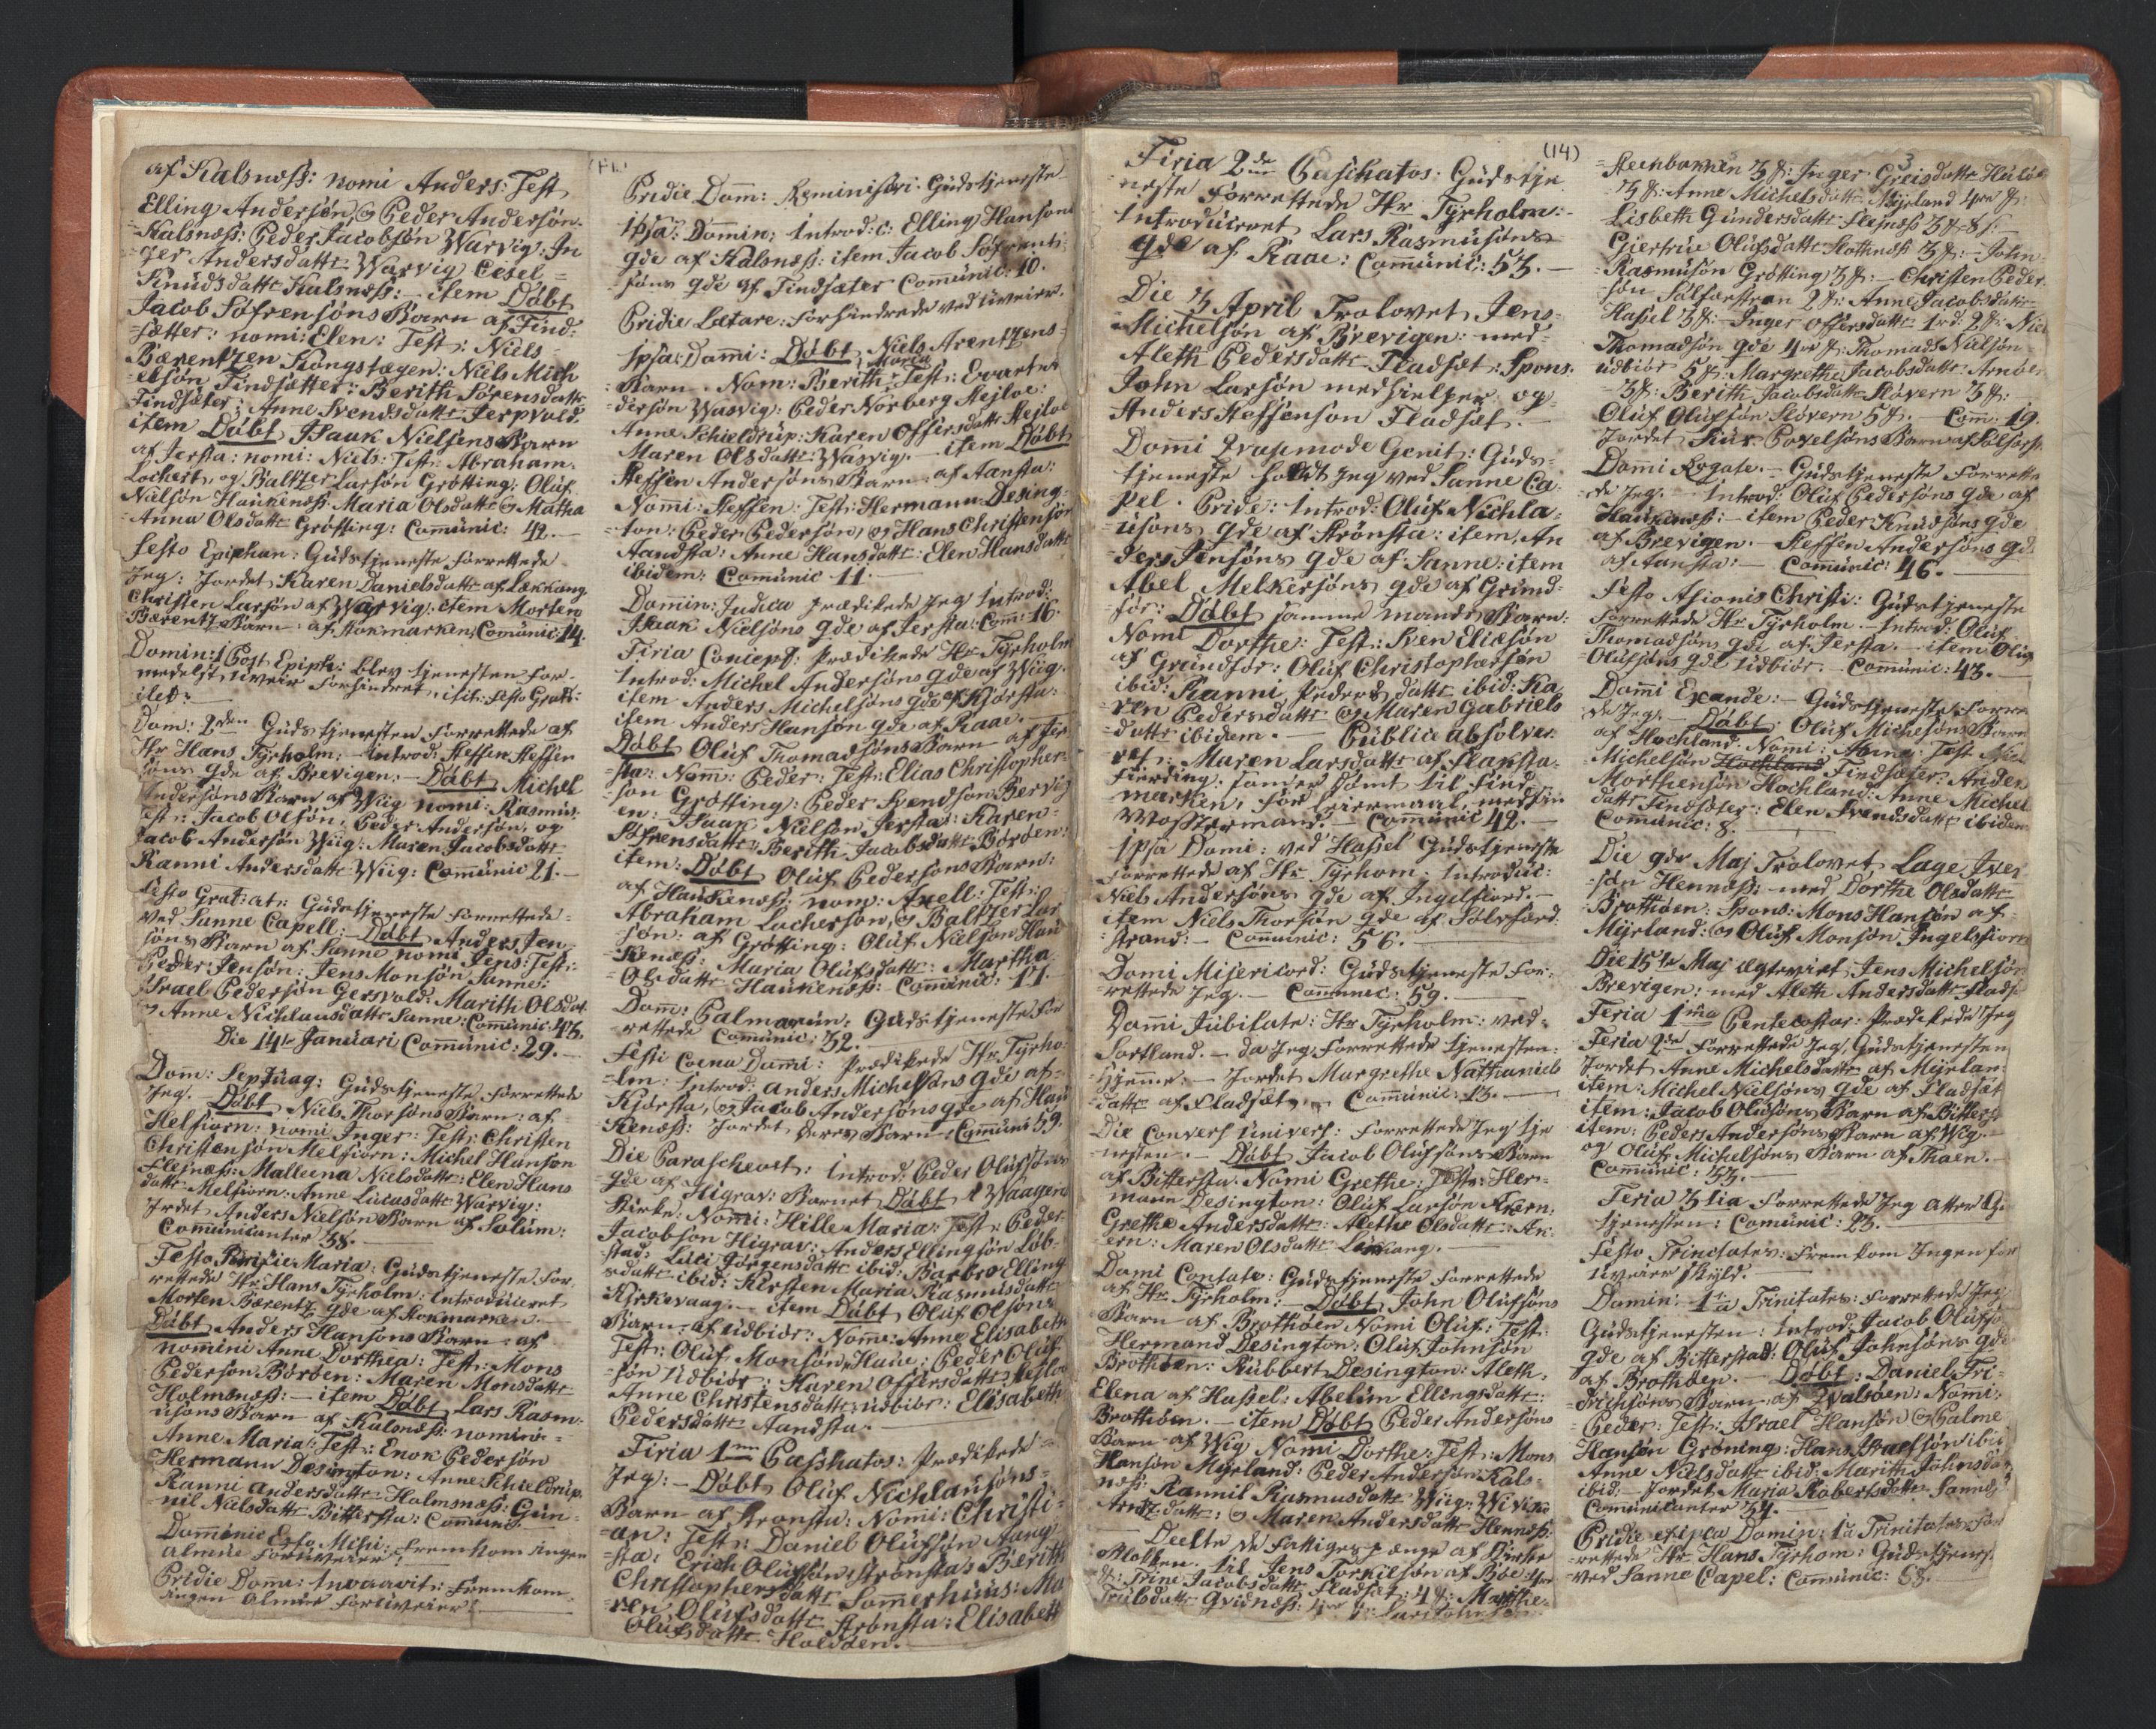 af Kalsnæss: nomi Anders: Test
Elling Andersøn, og Peder Andersøn
Kalsnæss: Peder Jacobsøn Warvig: In
ger Andersdatte Warvig Cisel=
Knudsdatte Kalsnæss: item Døbt
Jacob Søfrensøns Barn af Find:
sætter: nomi: Elen: Test: Niels
Bærentzen Kongstægen: Niels Mich
elsøn Findsætter: Berith Sørensdatte
Findsæter: Anne Svendsdatte Jerpvold
item Døbt Isaak Nielsens Barn
af Jersta: nomi: Niels: Test: Abraham
Lochert, og Baltzer Larsøn Grøtting: Oluf
Nielsøn Haukenæss: Maria Olsdatte og Matha
Anna Olsdatte Grøtting: Comunic: 42.
Festo Epiphan: Gudstjeneste forrettede
Jeg: Jordet Karen Danielsdatte af
Christen Larsøn af Warvig: item Morten
Bærentz Barn: af Stokmarken, Comunic: 14.
Domin: 1 Post Epiph: blev tjenesten for=
medelst uveir forhindret, itit: Festo Grat:
ilet:
Dom: 2den Gudstjenesten forrettede af
Hr Hans Tyrholm: Introd: Steffen Steffen
søns qde af Brevigen: Døbt Michel
Andersøns Barn af Wiig nomi: Rasmus:
Test: Jacob Olsøn: Peder Andersøn, og
Jacob Andersøn Wiig: Maren Jacobsdatte
Ranni Andersdatte Wiig: Comunic 21.
Festo Grat: at: Gudstjeneste forrettede
ved Sanne Capell: Døbt Anders Jen
søns Barn af Sanne nomi Jens: Test:
Peder Jensøn: Jens Monsøn Sanne:
Israel Pedersøn Gersvold: Marith Olsdat
og Anne Nichlausdatte Sanne: Comunic: 43.
Die 14de Januari Comunic: 29.
Dom: Septuag: Gudstjeneste forrettede
Jeg. Døbt Niels Thorsøns Barn: af
Helfiorn: nomi Inger: Test: Christen
Christensøn Melfiorn: Michel Hansøn
Flesnæss: Malleena Nielsdatte: Elen Hans
datte Melfiorn: Anne Lucasdatte Warvig:
Jordet Anders Nielsøn Barn af Solum:
Comunicanter 38.
Festo Purific Maria: Gudstjeneste for
rettede Hr Hans Tyrholm: introduceret
Morten Bærentz qde af Stokmarken.
Døbt Anders Hansøns Barn: af
nomine Anne Dorthea: Test: Mons
Pedersøn Børøen: Maren Monsdatte
Holmsnæss: item Døbt Lars Rasm:
usøns Barn af Kalsnæss nomini=
Anne Maria: Test: Enok Pedersøn
Hermann Desington: Anne Schieldrup.
Ranni Andersdatte Holmsnæss: Gun=
nil Nielsdatte Bittersta: Comunic.
Dominic Esto Mihi: fremkom ingen
almue for uveier!
Pridie Dom: Invaavit: fremkom
ingen almue for uveier!

Pridie Dom: Reminiscri. Gudstjeneste
ipsa: Domin: introd: c: Elling Hansøns
qde af Kalsnæss: item Jacob Søfrent:
søns qde af Findsæter Comunic: 10.
Pridie Lætare: forhindrede ved Uveier.
Ipsa: Domi: Døbt Niels Arentzens
Barn. Nom: Berith Maren Test: Evartan
dersøn Warvig: Peder Norberg Mejloe:
Anne Schieldrup: Karen Offersdatte Mejloe
Maren Olsdatte Warvig. item Døbt
Steffen Andersøns Barn af Aansta:
Nomi: Steffen: Test: Hermann Desing=
ton: Peder Pedersøn, og Hans Christensøn
Aandsta: Anne Hansdatte: Elen Hansdatte
ibidem: Comunic 11.
Domin: Judica prædikede Jeg Introd:
Isaak Nielsøns qde af Jersta: Com: 16.
Firia Concept: prædikede Hr Tyrholm
Introd: Michel Andersøns qde af Wiig.
item Anders Michelsøns qde af Kjørsta:
item Anders Hansøn qde af Raae.
Døbt Oluf Thomadsøns Barn af Jer
sta: Nom: Peder: Test: Elias Christopher=
søn Grøtting: Peder Svendsøn Bervig
en: Isaak Nielsøn Jersta: Karen=
Søfrensdatte: Berith Jacobsdatte Børøen:
item: Døbt Oluf Pedersøns Barn:
af Haukenæss: nom: Axell: Test:
Abraham Lochersøn, og Baltzer Lar
søn: af Grøtting: Oluf Nielsøn Hau
kenæss: Maria Olufsdatte: Martha
Olsdatte Haukenæss: Comunic: 17.
Dom: Palmarum: Gudstjeneste for
rettede Comunic: 32.
Festi Coena Domi: Prædikede Hr Tyrho
lm: Introd: Anders Michelsøns qde af=
Kjørsta, og Jacob Andersøns qde af Hau
kenæss: Jordet deres Barn: Comuni 59.
Die Paraschevet: introd: Peder Olufsøns
qde af Higrav: Barnet Døbt i Waagens
Kirke: Nomi: Hille Maria: Test: Peder
Jacobsøn Higrav: Anders Ellingsøn Løb=
stad: Luci Jørgensdatte ibid: Barbro Elling
sdatte ibid: Kirsten Maria Rasmusdatte
Kirkevaag. item Døbt Oluf Olsøns
Barn: af udbiør: Nom: Anne Elisabeth
Test: Oluf Monsøn, Haue: Peder Oluf
søn Udbiør: Karen Offersdatte Mejloe
Anne Christensdatte udbiør: Elisabeth
Pedersdatte Aandsta.
Firia 1ma Paschatos: Prædikede=
Jeg: Døbt Oluf Nichlausøns=
Barn af Stronsta: Nomi: Christi=
an: Test: Daniel Olufsøn Aang
sta: Erich Olufsøn Strønsta: Berith
Christophersdatte Sommerhuus: Ma
ren Olufsdatte Strønsta: Elisabeth
Olufsdatte Haldøen.

(14)
Firia 2de Paschatos: Gudstje
neste forrettede Hr Tyrholm:
Introduceret Lars Rasmusøns
qde af Raae: Comunic: 53.
Die 3 April Trolovet Jens
Michelsøn af Brevigen: med
Aleth Pedersdatte Fladsæt: Spons.
John Larsøn medhielper og
Anders Steffensøn Fladsæt.
Domi Qvasimodo Genit: Guds=
tjeneste holdt Jeg ved Sanne Ca=
pel. Pride: Introd: Oluf Nichla=
usøns qde af Strønsta: item, An
ders Jensøns qde af Sanne: item
Abel Melkersøns qde af Grund=
før: Døbt samme mands Barn:
Nomi Dorthe: Test: Sven Eliæsøn
af Grundfør: Oluf Christophersøn
ibid: Ranni Pedersdatte ibid: Ka
ren Pedersdatte og Maren Gabriels
datte ibidem. Publice absolver
ret: Maren Larsdatte af Flaksta
fierding: Som er dømt til Find=
marken, for leiermaal, med sin
Mostermand. Comunic 42.
Ipsa Domi: ved Hassel Gudstjeneste
forrettede af Hr Tyrhom. Introduc:
Niels Andersøns qde af Ingelfiord.
item Niels Thorsøn qde af Sølfærd
strand: Comunic: 56.
Domi Misericord: Gudstjeneste for=
rettede Jeg. Comunic: 59.
Domi Jubilate: Hr Tyrholm: ved=
Sortland. da Jeg forrettede tjenesten:
hjemme: Jordet Margrethe Nathaniels
datte af Fladsæt, Comunic: 23.
Die Convers Univers: forrettede Jeg tje
nesten. Døbt Jacob Olufsøns Barn
af Bittersta: Nomi Grethe: Test: Her=
mann Desington: Oluf Larsøn Ærørn:
Grethe Andersdatte: Alethe Olsdatte: An:
ern: Maren Olsdatte
Domi Cantate: Gudstjeneste forrettede
af Hr Tyrholm: Døbt John Olufsøns
Barn af Brothøen Nomi Oluf: Test:
Hermand Desington: Oluf Johnsøn
Brothøen: Rubbert Desington: Aleth.
Elena af Hassel: Abelün Ellingsdatte:
Brothøen. item Døbt Peder Andersøns
Barn af Wig Nomi Dorthe: Test: Mons
Hansøn Myrland: Peder Andersøn Kals=
næss: Rannil Rasmusdatte Wiig: Wivike
Arntzdatte: og Maren Andersdatte Hennæss:
Deelte de fattiges penge af Kirke
blokken: til Jens Torkilsøn af Bøe: 4re
Trine Jacobsdatte Fladsæt: 4 : Marithe
Trulsdatte Qvidnæss:

Steenbannen 3 : Inger Greisdatte
3 : Anne Michelsdatte Myrland 4re
Lisbeth Gundersdatte Flesnæss 3
Giertrue Olufsdatte Slotnæss 3 : John
Rasmusøn Grøtting 3 : Christen Peder
søn Sølfarstran 2 : Anne Jacobsdatte
Hassel 3 : Inger Offersdatte ibd: 2 : Niels
Thomadsøn qde 4re : Thomads Nielsøn
udbiør 5 : Margrethe Jacobsdatte
3 : Berith Jacobsdatte Støvern 3 :
Oluf Olufsøn Støvern 5 . Com: 19.
Jordet Povelsøns Barn af
Domi Rogate. Gudstjeneste forrette
de Jeg. Introd: Oluf Pedersøns qde af
Haukenæss: item Peder Knudsøns qde
af Brevigen. Steffen Andersøns qd
af Aansta: Comunic: 46.
Festo Asionis Christi: Gudstjeneste
forrettede Hr Tyrholm. Introd: Oluf
Thomadsøns qde af Jersta. item Oluf
Olufsøns qde udbiør. Comunic: 43.
Domi Exande: Gudstjeneste forre
de Jeg. Døbt: Oluf Michelsøns Barn
af Hochland. Nomi: Test
Michelsøn Findsæter: Anders
Morthensøn Hochland: Anne Michel
datte Findsæter: Elen Svendsdatte ibidem
Comunic: 8.
Die 9de Maj Trolovet Lage Iver
søn Hennæss: med Dorthe Olsdatte
Brothøen: Spons: Mons Hansøn af
Myrland: og Oluf Monsøn Ingelsfiorn
Die 15de Maj egteviet Jens Michelsøn
Brevigen: med Aleth Andersdatte Flads
Feria 1ma Pentecostos: Prædikede Jeg
Feria 2de forrettede Jeg Gudstjenesten
Jordet Anne Michelsdatte af Myrlan:
item: Michel Nielsøns qde af Fladsæt
item: Jacob Olufsøns Barn af Bitters
item: Peders Andersøns Barn af Wig.
og Oluf Michelsøns Barn af Thaen.
Comunic: 53.
Feria 3tia forrettede Jeg atter G
tjenesten: Comunic: 23.
Festo Trinitates: fremkom Ingen for
uveier skyld.
Domin: 1a Trinitates: forrettede Jeg
Gudstjenesten: Introd: Jacob Olufsø
qde af Bitterstad: Oluf Johnsøns qde
af Brothøen. Døbt: Daniel Fri=
drichsøns Barn af Qvalsøen: Nomi:
Peder: Test: Israel Hansøn og Palme
Hansøn Grøning: Hans Israelsøn ibid
Anne Nielsdatte ibid: Marith Johnsda
ibid. Jordet Maria Robertsdatte Sannd
Comunicanter 34.
Pridie et ipsa Domin: 1a Trinitates for
rettede Hr Hans Tyrhom: Gudstjenes
ved Sanne Capel: Comunic: 68.